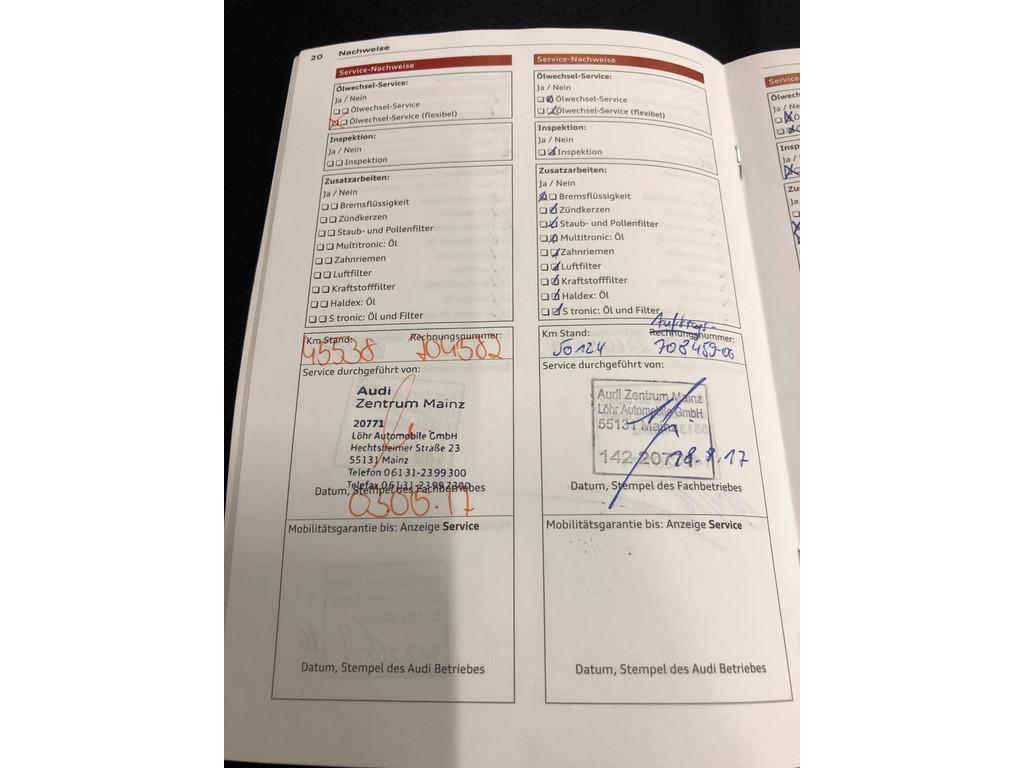 20 Nachweise
Service-Nachweise
Ölwechsel-Service:
Ja / Nein
Ölwechsel-Service
Ölwechsel-Service (flexibel)
Inspektion:
Ja / Nein
Inspektion
Zusatzarbeiten:
Ja / Nein
Bremsflüssigkeit
Zündkerzen
Staub- und Pollenfilter
Multitronic: Öl
Zahnriemen
Luftfilter
Kraftstofffilter
Haldex: Öl
S tronic: Öl und Filter
Km Stand: Rechnungsnummer:
45538 704582
Service durchgeführt von:
Audi
Zentrum Mainz
20771
Löhr Automobile GmbH
Hechtsheimer Straße 23
55131 Mainz
Telefon 06131-2399300
Telefax 06131-23997300
Datum, Stempel des Fachbetriebes
0305.17
Mobilitätsgarantie bis: Anzeige Service
Datum, Stempel des Audi Betriebes
Service-Nachweise
Ölwechsel-Service:
Ja / Nein
Ölwechsel-Service
Ölwechsel-Service (flexibel)
Inspektion:
Ja / Nein
Inspektion
Zusatzarbeiten:
Ja / Nein
Bremsflüssigkeit
Zündkerzen
Staub- und Pollenfilter
Multitronic: Öl
Zahnriemen
Luftfilter
Kraftstofffilter
Haldex: Öl
S tronic: Öl und Filter
Auftrags-
Km Stand: Rechnungsnummer:
50124 708459-00
Service durchgeführt von:
Audi Zentrum Mainz
Löhr Automobile GmbH
55131 Mainz
142 2077
28.8.17
Datum, Stempel des Fachbetriebes
Mobilitätsgarantie bis: Anzeige Service
Datum, Stempel des Audi Betriebes
Service